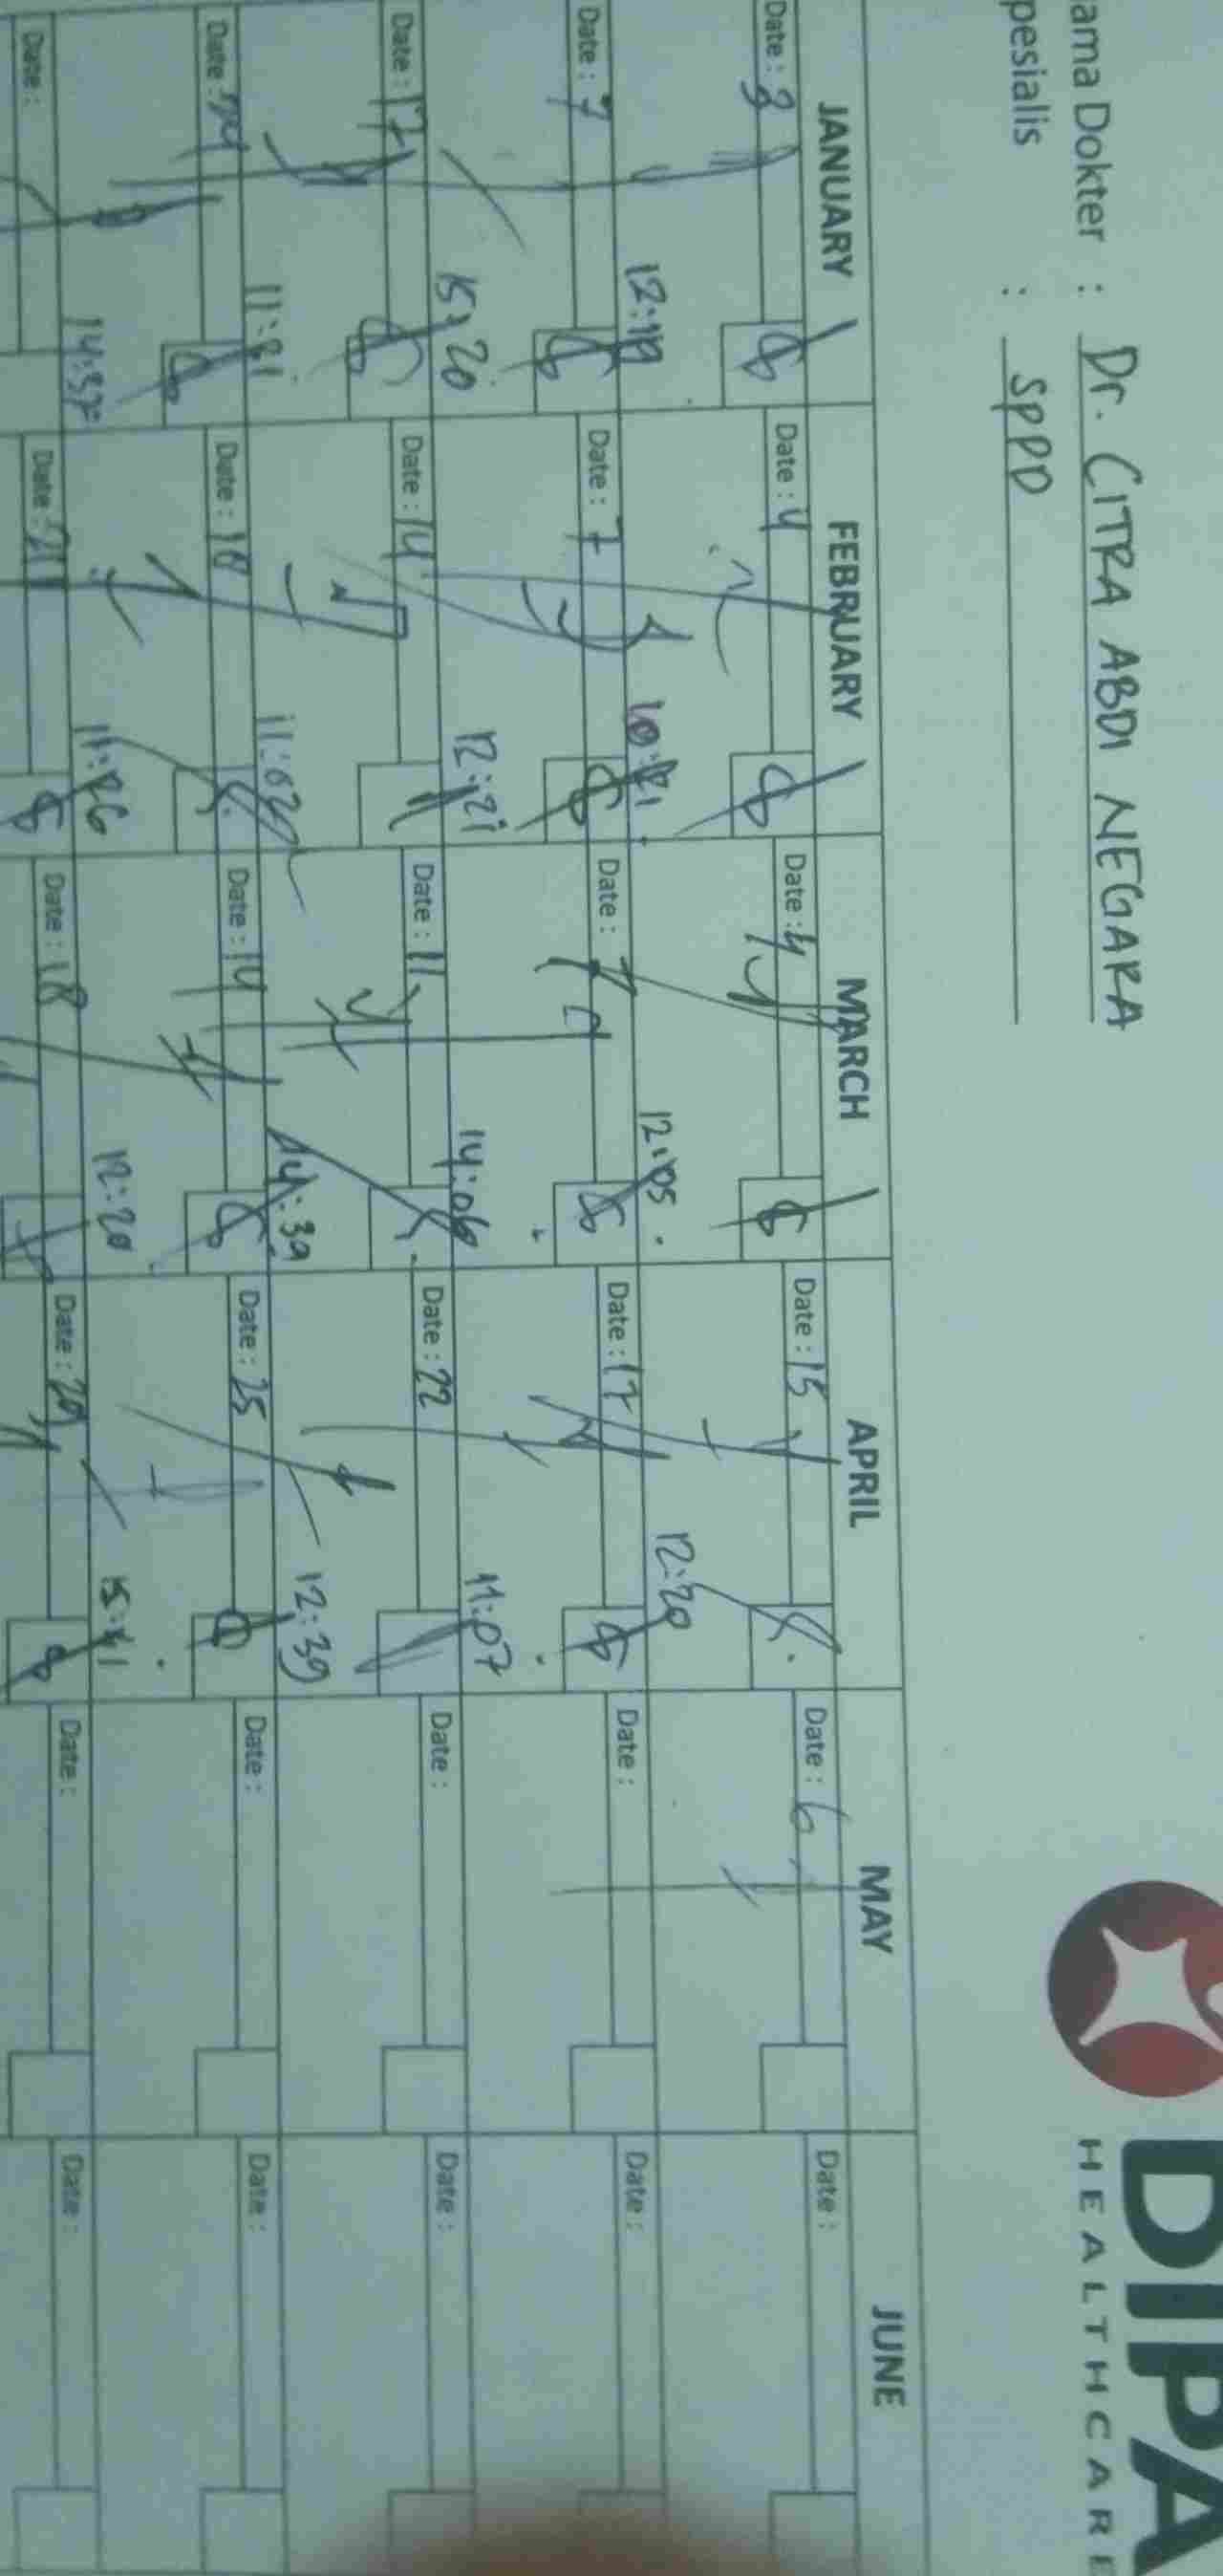 DIPA
HEALTHCARE
ama Dokter : Dr. CITRA ABDI NEGARA
pesialis : SPPD
JANUARY FEBRUARY MARCH APRIL MAY JUNE
Date : 3 Date : 4 Date : 4 Date : 15 Date : 6 Date :
12:05 12:20
Date : 7 Date : 7 Date : 7 Date : 17 Date : Date :
15:20 12:21 14:06 11:07
Date : 17 Date : 14 Date : 11 Date : 22 Date : Date :
11:02 14:39 12:39
Date : 24 Date : 18 Date : 14 Date : 25 Date : Date :
14:37 12:20 15:41
Date : Date : 21 Date : 18 Date : 29 Date : Date :